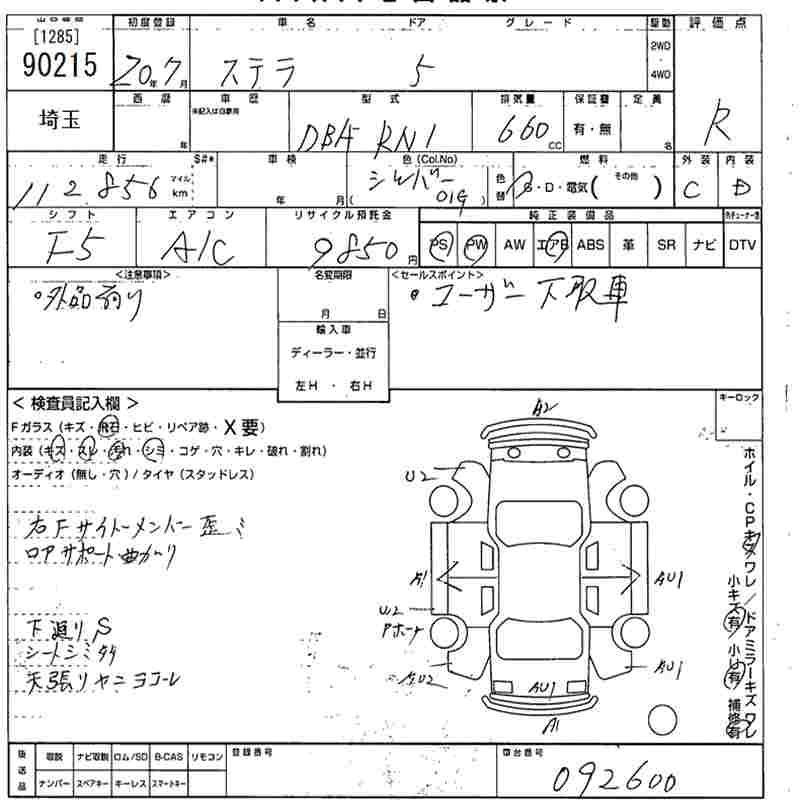 [1285]
90215
埼玉
初度登録
20年7月
車名
ステラ
ドア
5
グレード
駆動
2WD
4WD
評価点
R
西暦
年
車歴
未記入は自家用
型式
DBA RN1
排気量
660
CC
保証書
有・無
定員
名
走行
112,856
マイル
km
S#*
車検
年 月
色 (Col.No)
シルバー
( 01G )
色替
燃料
G・D・電気( その他 )
外装
C
内装
D
シフト
F5
エアコン
A/C
リサイクル預託金
9850円
純正装備品
PS PW AW エアB ABS 革 SR ナビ
DTV
<注意事項>
名変期限
月 日
輸入車
ディーラー・並行
左H ・ 右H
<セールスポイント>
・ユーザー下取車
< 検査員記入欄 >
Fガラス (キズ・飛石・ヒビ・リペア跡・X要)
内装 (キズ・スレ・汚れ・シミ・コゲ・穴・キレ・破れ・割れ)
オーディオ (無し・穴) / タイヤ (スタッドレス)
右Fサイドメンバー歪ミ
ロアサポート曲がり
下廻りS
シートシミ
天張りヤニヨゴレ
キーロック
A2
U2
A1
AU1
U2
AU1
AU1
A1
ホイル・CPキズワレ/ドアミラーキズワレ
小キズ有 小U有 補修有
後送品
取説 ナビ取説 ロム/SD B-CAS リモコン
ナンバー スペアキー キーレス スマートキー
登録番号
車台番号
092600